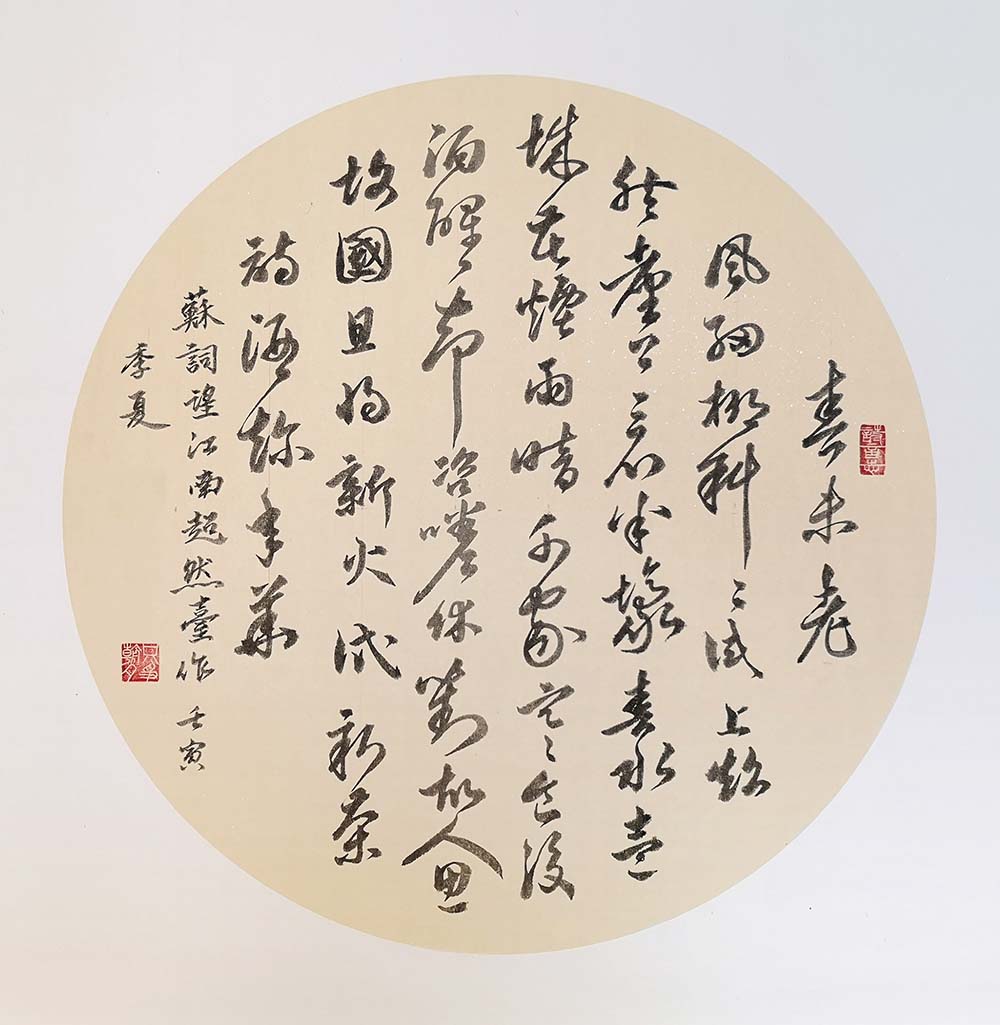 春未老
風細柳斜〻試上超
然臺上看半壕春水壹
城花煙雨暗千家寒食後
酒醒却咨嗟休對故人思
故國且將新火試新茶
詩酒趁年華
蘇詞望江南超然臺作 壬寅
季夏